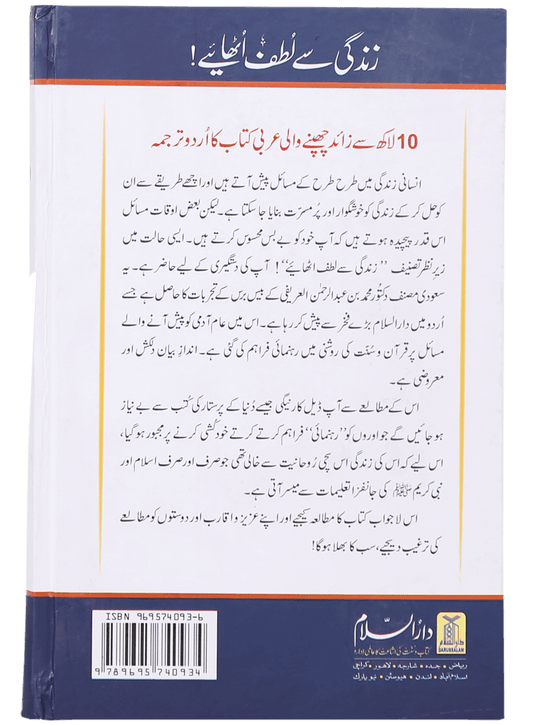 زندگی سے لُطف اُٹھائیے!
10 لاکھ سے زائد چھپنے والی عربی کتاب کا اُردو ترجمہ
انسانی زندگی میں طرح طرح کے مسائل پیش آتے ہیں اور اچھے طریقے سے ان
کو حل کر کے زندگی کو خوشگوار اور پُر مسرّت بنایا جا سکتا ہے۔ لیکن بعض اوقات مسائل
اس قدر پیچیدہ ہوتے ہیں کہ آپ خود کو بے بس محسوس کرتے ہیں۔ ایسی حالت میں
زیرِ نظر تصنیف ’’زندگی سے لطف اٹھائیے‘‘! آپ کی دستگیری کے لیے حاضر ہے۔ یہ
سعودی مصنف دکتور محمد بن عبدالرحمٰن العریفی کے بیس برس کے تجربات کا حاصل ہے جسے
اُردو میں دارالسلام بڑے فخر سے پیش کر رہا ہے۔ اس میں عام آدمی کو پیش آنے والے
مسائل پر قرآن و سُنّت کی روشنی میں رہنمائی فراہم کی گئی ہے۔ اندازِ بیان دلکش اور
معروضی ہے۔
اس کے مطالعے سے آپ ڈیل کارنیگی جیسے دُنیا کے پرستار کی کُتب سے بے نیاز
ہو جائیں گے جو اوروں کو ’’رہنمائی‘‘ فراہم کرتے کرتے خود خودکُشی کرنے پر مجبور ہو گیا،
اس لیے کہ اس کی زندگی اس سچی رُوحانیت سے خالی تھی جو صرف اور صرف اسلام اور
نبی کریم ﷺ کی جانفزا تعلیمات سے میسر آتی ہے۔
اس لاجواب کتاب کا مطالعہ کیجیے اور اپنے عزیز و اقارب اور دوستوں کو مطالعے
کی ترغیب دیجیے، سب کا بھلا ہوگا!
ISBN 969574093-6
9 789695 740934
دارالسلام
کتاب و سُنّت کی اشاعت کا عالمی ادارہ
ریاض • جدہ • شارجہ • لاہور • کراچی
اسلام آباد • لندن • ہیوسٹن • نیو یارک
دارالسلام
DARUSSALAM